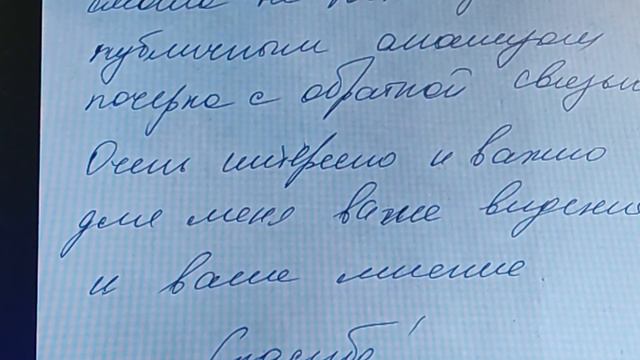 публичным анализом
почерка с обратной связью
Очень интересно и важно
для меня ваше видение
и ваше мнение.
Спасибо!